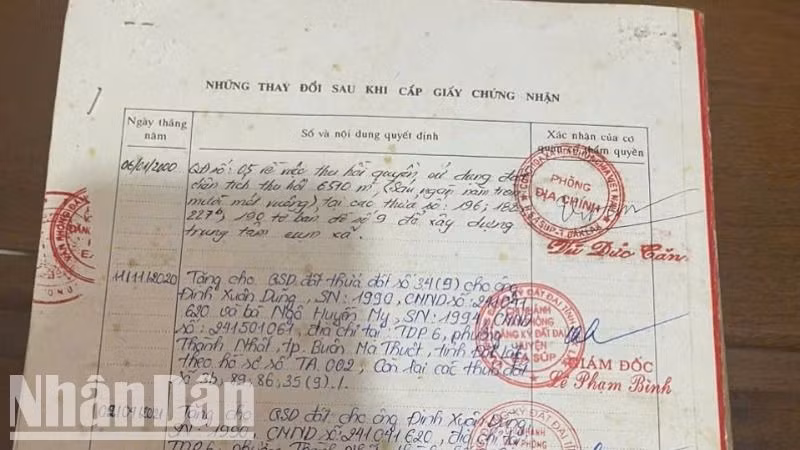 NHỮNG THAY ĐỔI SAU KHI CẤP GIẤY CHỨNG NHẬN
Ngày tháng năm
Số và nội dung quyết định
Xác nhận của cơ quan có thẩm quyền
06/01/2000
QĐ số: 05 về việc thu hồi quyền sử dụng đất
diện tích thu hồi 6510 m² (Sáu ngàn năm trăm
mười mét vuông), tại các thửa số: 196; 162
227ᵇ, 190 tờ bản đồ số 9 để xây dựng
trung tâm cụm xã.
PHÒNG
ĐỊA CHÍNH
Vũ Đức Căn
11/11/2020
Tặng cho QSD đất thửa đất số 34(9) cho ông
Đinh Xuân Dung, SN: 1990, CMND số: 241041
620 và bà Ngô Huyền My, SN: 1991, CMND
số: 241501067, địa chỉ tại: TDP 6, phường
Thành Nhất, tp. Buôn Ma Thuột, tỉnh Đắk Lắk
theo hồ sơ số TA.002, Còn lại các thửa đất
số 33, 89, 86, 35(9)./.
CHI NHÁNH
VĂN PHÒNG
ĐĂNG KÝ ĐẤT ĐAI
HUYỆN
EA SÚP
GIÁM ĐỐC
Lê Phạm Bình
02/04/2021
Tặng cho QSD đất cho ông Đinh Xuân Dung
SN: 1990, CMND số 241041620, địa chỉ tại
TDP 6, phường
NhânDân